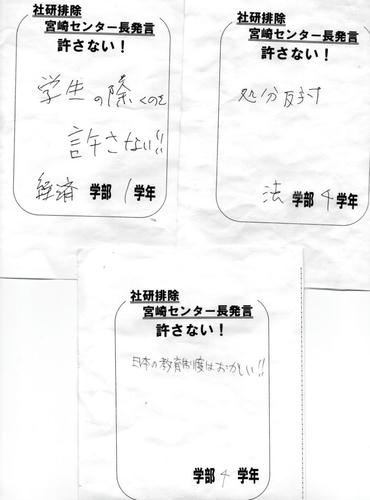 社研排除
宮崎センター長発言
許さない！
学生の除くのを
許さない!!
経済 学部 1 学年
社研排除
宮崎センター長発言
許さない！
処分反対
法 学部 4 学年
社研排除
宮崎センター長発言
許さない！
日本の教育制度はおかしい!!
学部 4 学年